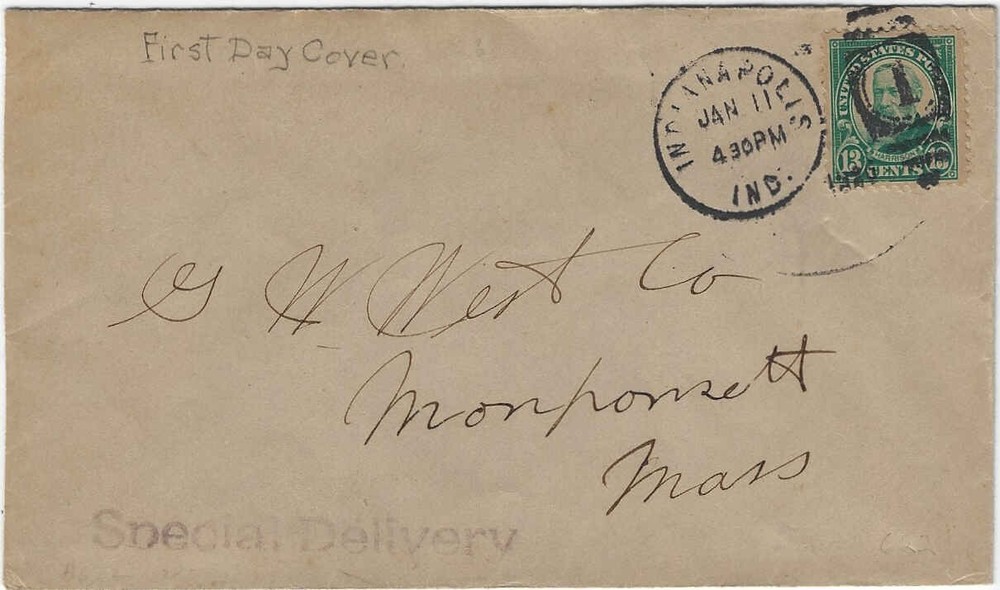 First Day Cover
INDIANAPOLIS
JAN 11
4 30PM
IND.
1
UNITED STATES PO
HARRISON
13 CENTS 13
G W West Co
Monponsett
Mass
Special Delivery